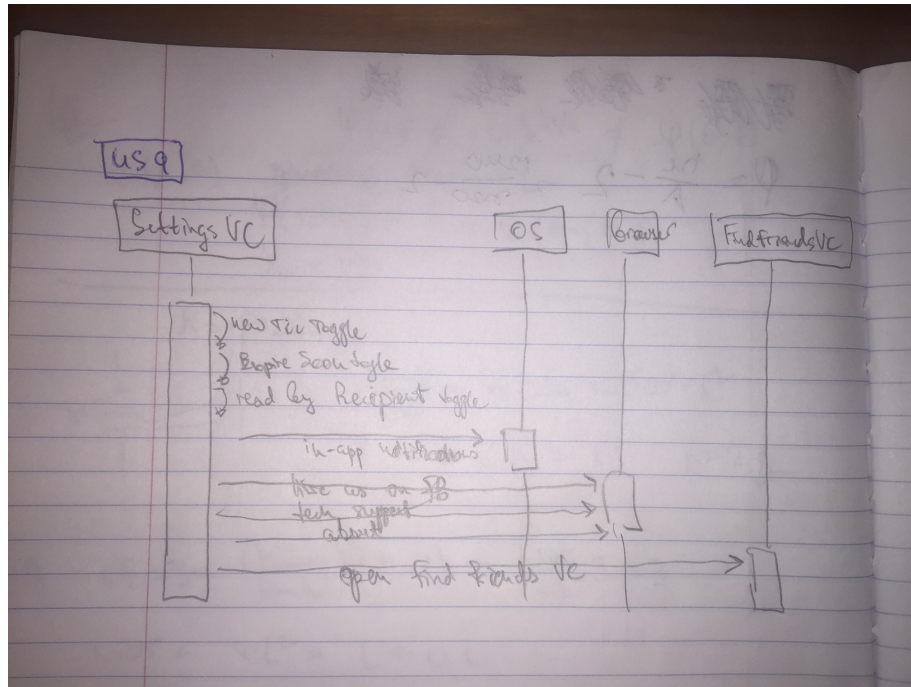 US 9
Settings VC
OS
Browser
FindFriendsVC
new Tic Toggle
Expire Soon toggle
read by Recipient toggle
in-app notifications
like us on FB
tech support
about
open find friends VC